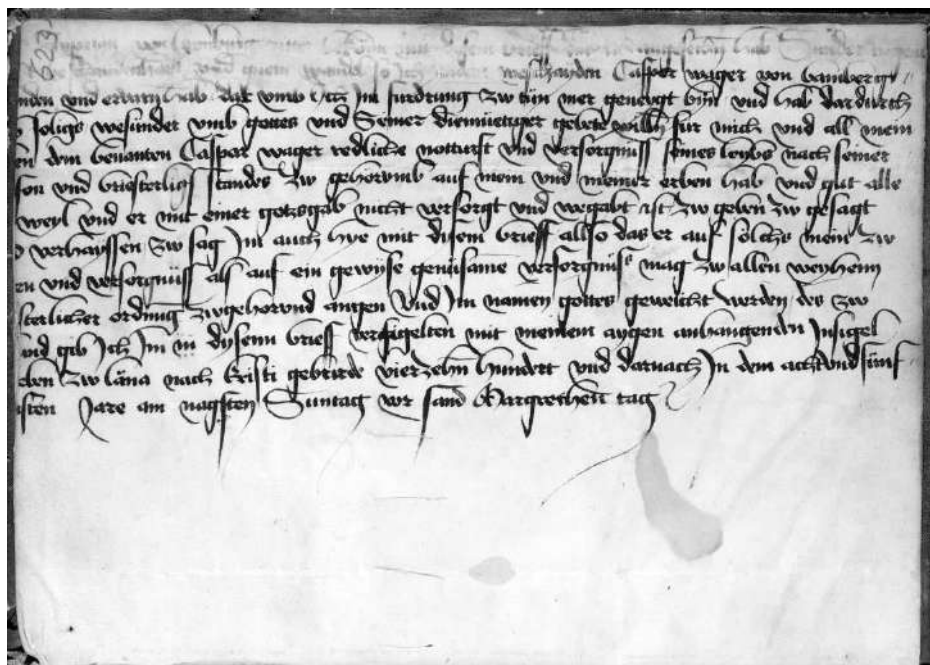 623
mit disem brieff das hab
und westhanden Caspar wager von bamberg
nden und erbern hab das umb Ich Im furdrung zw tun mer genebgt bin und hab dardurch
solichs wesunder umb gottes und Seiner diemuetiger gebete willn fur mich und all mein
en dem benanten Caspar wager redliche notturfft und versorgnuss seines leybs nach seiner
son und briesterlichs standes zw gehorund auf mein und meiner erben hab und gut alle
weyl und er mit einer gotzgab nicht versorgt und wegabt ist zw geben zw gesagt
verhayssen zw sag Im auch hye mit disem brieff also das er auf solchs mein zw
en und versorgnuss als auf ein gewise genusame versorgnuss mag zw allen weyhenn
sterlicher ordnung zwgehorund angen und Im namen gottes geweicht werden des zw
und gib Ich Im disenn brieff versigelten mit meinem aygen anhangenden Insigel
eben zw lana nach kristi geburde vierzehn hundert und darnach In dem achtundfunf
isten Jare am nagsten Suntag vor sand Margrethen tag